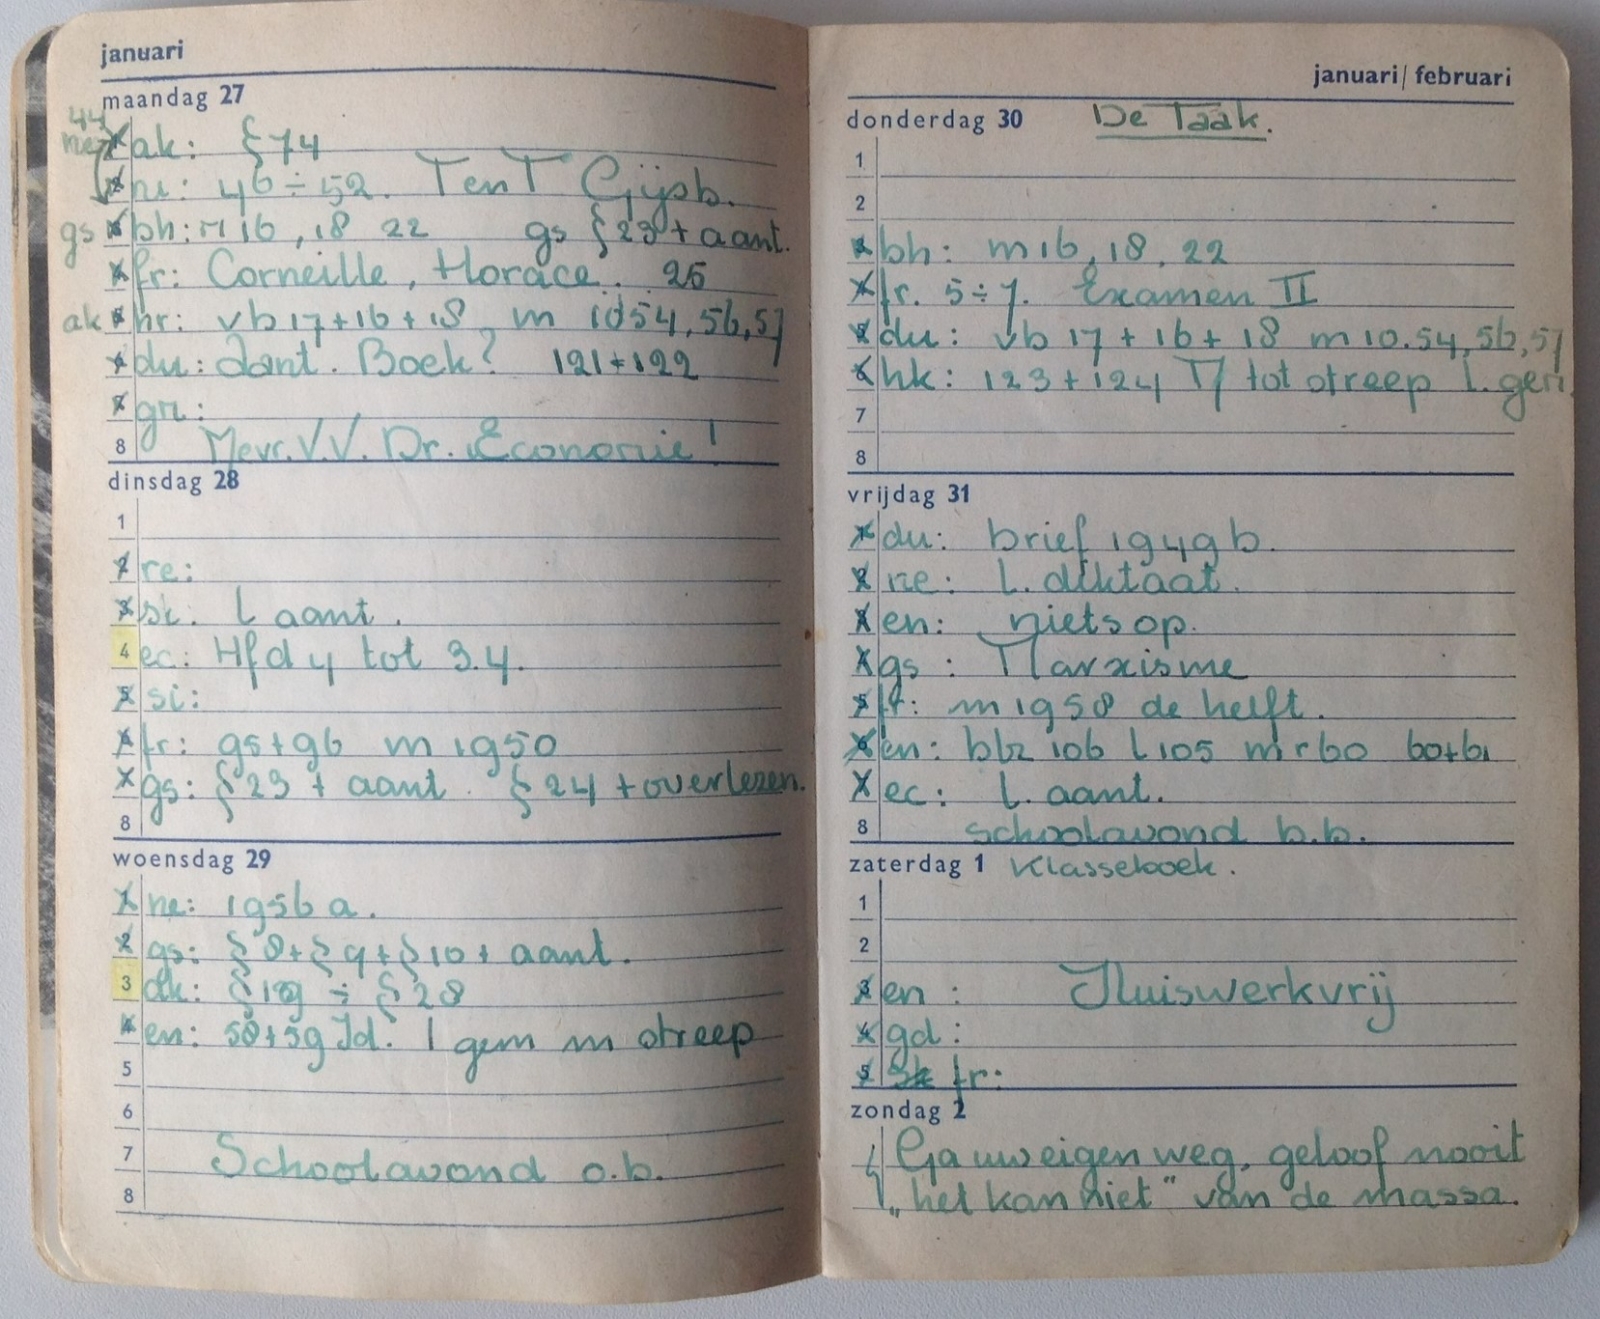 januari
maandag 27
44
ak: §74
ne: 46 ÷ 52. T en T Gijsb.
gs bh: m 16, 18 22 gs §23 + aant.
fr: Corneille, Horace. 25
ak hr: vb 17+16+18 m 1054, 56, 57
du: aant. Boek? 121+122
gn:
8 Mevr. V.V. Dr. Economie!
dinsdag 28
1
2 re:
3 sk: l aant.
4 ec: Hfd 4 tot 3.4.
5 si:
fr: 95+96 m 1950
gs: §23 + aant. §24 + overlezen.
8
woensdag 29
1 ne: 1956 a.
2 gs: §8+§9+§10+ aant.
3 ak: §19 ÷ §28
4 en: 58+59 Id. l gem m streep
5
6
7 Schoolavond o.b.
8
januari/februari
donderdag 30 De Taak.
1
2
bh: m 16, 18, 22
fr. 5÷7. Examen II
du: vb 17 + 16 + 18 m 10.54, 56, 57
6 hk: 123 + 124 tot streep l. gen
7
8
vrijdag 31
du: brief 1949 b.
2 ne: l. diktaat.
en: niets op.
gs: Marxisme
5 fr: m 1958 de helft.
6 en: blz 106 l 105 m r 60 60+61
ec: l. aant.
8 schoolavond b.b.
zaterdag 1 Klasseboek.
1
2
3 en: Huiswerkvrij
4 gd:
5 fr:
zondag 2
Ga uw eigen weg, geloof nooit
„het kan niet" van de massa.